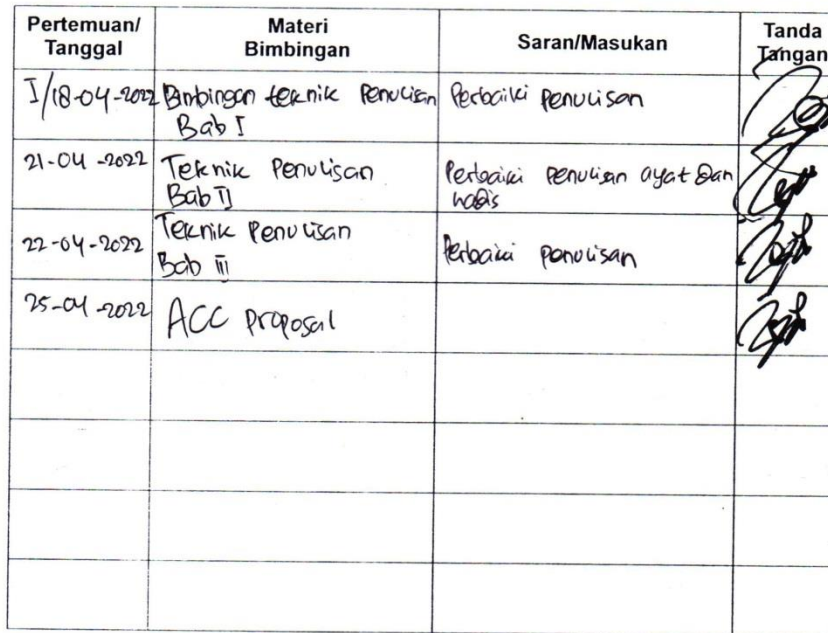 Pertemuan/
Tanggal
Materi
Bimbingan
Saran/Masukan
Tanda
Tangan
I/18-04-2022
Bimbingan teknik Penulisan
Bab I
Perbaiki Penulisan
21-04-2022
Teknik Penulisan
Bab II
Perbaiki Penulisan ayat dan
hadis
22-04-2022
Teknik Penulisan
Bab III
Perbaiki penulisan
25-04-2022
ACC proposal